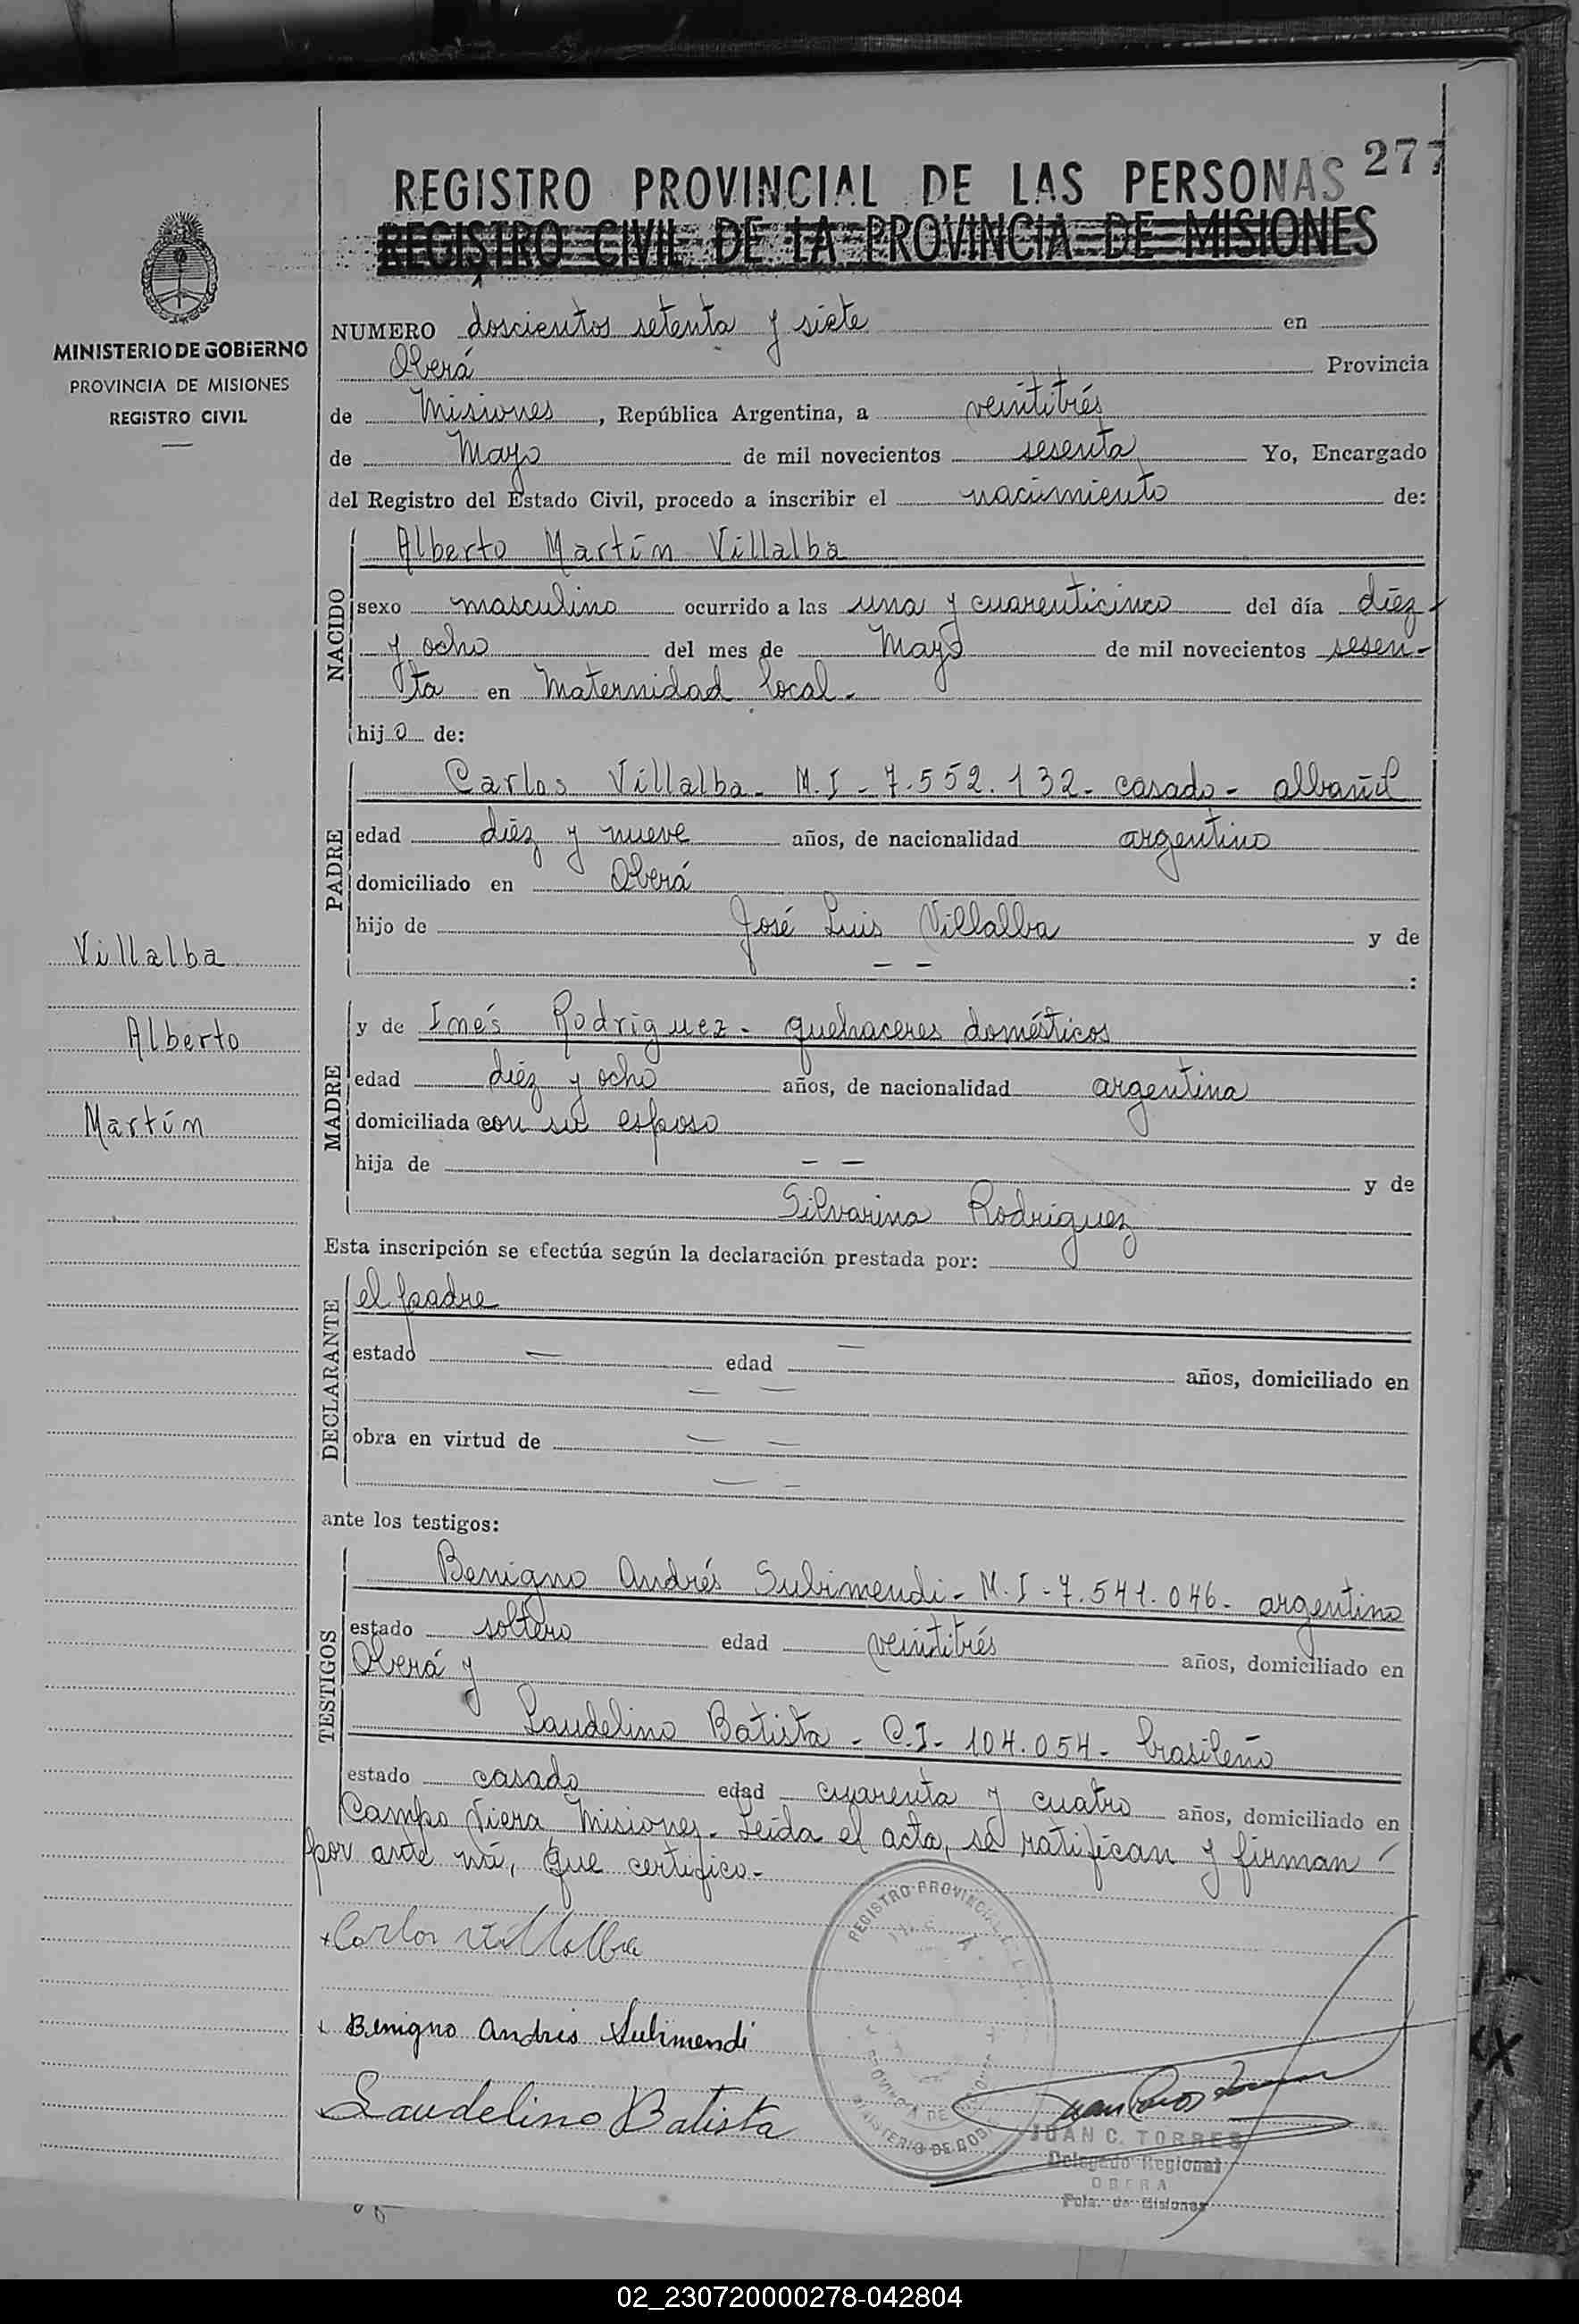 277
REGISTRO PROVINCIAL DE LAS PERSONAS
REGISTRO CIVIL DE LA PROVINCIA DE MISIONES
MINISTERIO DE GOBIERNO
PROVINCIA DE MISIONES
REGISTRO CIVIL
NUMERO doscientos setenta y siete en
Oberá Provincia
de Misiones, República Argentina, a veintitrés
de Mayo de mil novecientos sesenta Yo, Encargado
del Registro del Estado Civil, procedo a inscribir el nacimiento de:
NACIDO
Alberto Martín Villalba
sexo masculino ocurrido a las una y cuarenticinco del día diéz
y ocho del mes de Mayo de mil novecientos sesen-
ta en Maternidad local.
hijo de:
PADRE
Carlos Villalba - M.I - 7.552.132 - casado - albañil
edad diéz y nueve años, de nacionalidad argentino
domiciliado en Oberá
hijo de José Luis Villalba y de
— — :
Villalba
Alberto
Martín
MADRE
y de Inés Rodriguez - quehaceres domésticos
edad diéz y ocho años, de nacionalidad argentina
domiciliada con su esposo
hija de — — y de
Silvarina Rodriguez
Esta inscripción se efectúa según la declaración prestada por:
DECLARANTE
el padre
estado — edad — años, domiciliado en
— —
obra en virtud de — —
— —
ante los testigos:
TESTIGOS
Benigno Andrés Subimendi - M.I - 7.541.046 - argentino
estado soltero edad veintitrés años, domiciliado en
Oberá y
Laudelino Batista - C.I - 104.054 - brasileño
estado casado edad cuarenta y cuatro años, domiciliado en
Campo Viera Misiones. Leída el acta, se ratifican y firman
por ante mí, que certifico.-
Carlos Villalba
Benigno Andrés Subimendi
Laudelino Batista
REGISTRO PROVINCIAL
PROVINCIA DE MISIONES
MINISTERIO DE GOB
JUAN C. TORRES
Delegado Regional
OBERA
Pcia. de Misiones
02_230720000278-042804